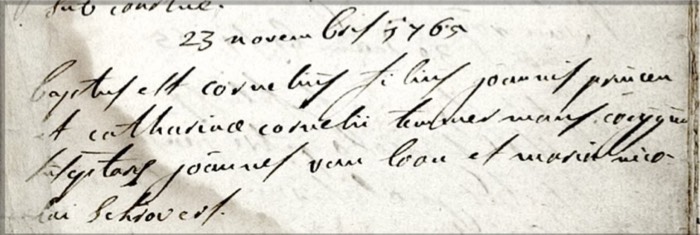 sub conditione.
23 novembris 1765
baptus est cornelius filius joannis princen
et catharinae cornelii temmermans conjugum
susceptores joannes van loon et maria nico-
lai schrovers.